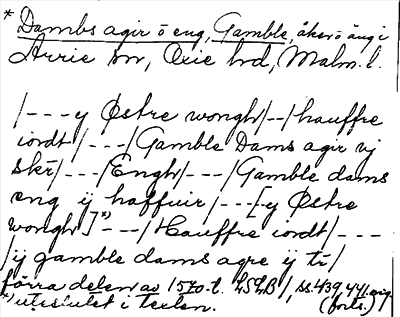 * Dambs agir ō eng, Gamble, åker ō äng i
Arrie sn, Oxie hd, Malm. l.
/---y Østre wongh/--/hauffre
iordt/---/Gamble Dams agir vj
skr̄/---/Engh/---/Gamble dams
eng ij haffuir/---[y Østre
wongh]*)---/Hauffre iordt/---
/ij gamble dams agre ij tr̄/
förra delen av 1570-t. LSLB, ss. 439, 441. orig
*) uteslutet i texten. (forts.)